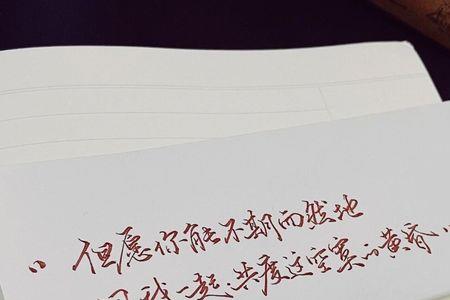 “但愿你能不期而然地
我一起、共度这空寞的黄昏”